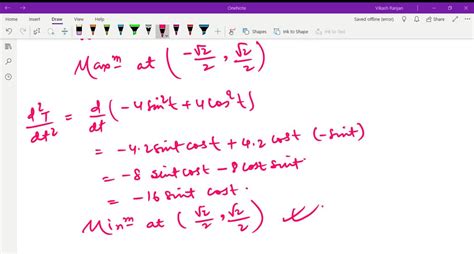 OneNote
Vikash Ranjan
File Home Insert Draw View Help
Saved offline (error)
Share
Ink to Shape
Ink to Text
Max^m at (-√2/2, √2/2)
d²T/dt² = d/dt (-4sin²t + 4cos²t)
= -4.2sint cost + 4.2 cost (-sint)
= -8 sint cost - 8 cost sint.
= -16 sint cost.
Min^m at (√2/2, √2/2)